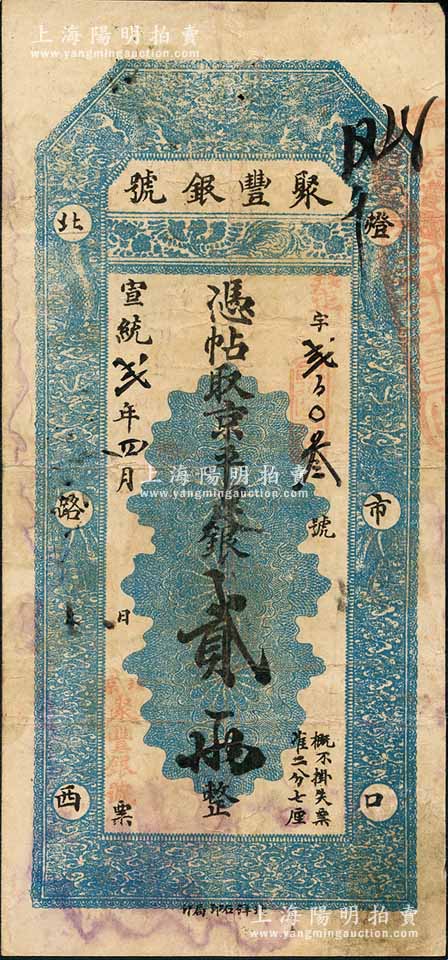 上海陽明拍賣
www.yangmingauction.com
聚豐銀號
燈市口
北路西
字貳百〇叁號
憑帖取京平足銀貳兩整
概不掛失票
省二分七厘
宣統貳年四月 日
聚豐銀號票
上海陽明拍賣
www.yangmingauction.com
石印局行
上海陽明拍賣
www.yangmingauction.com